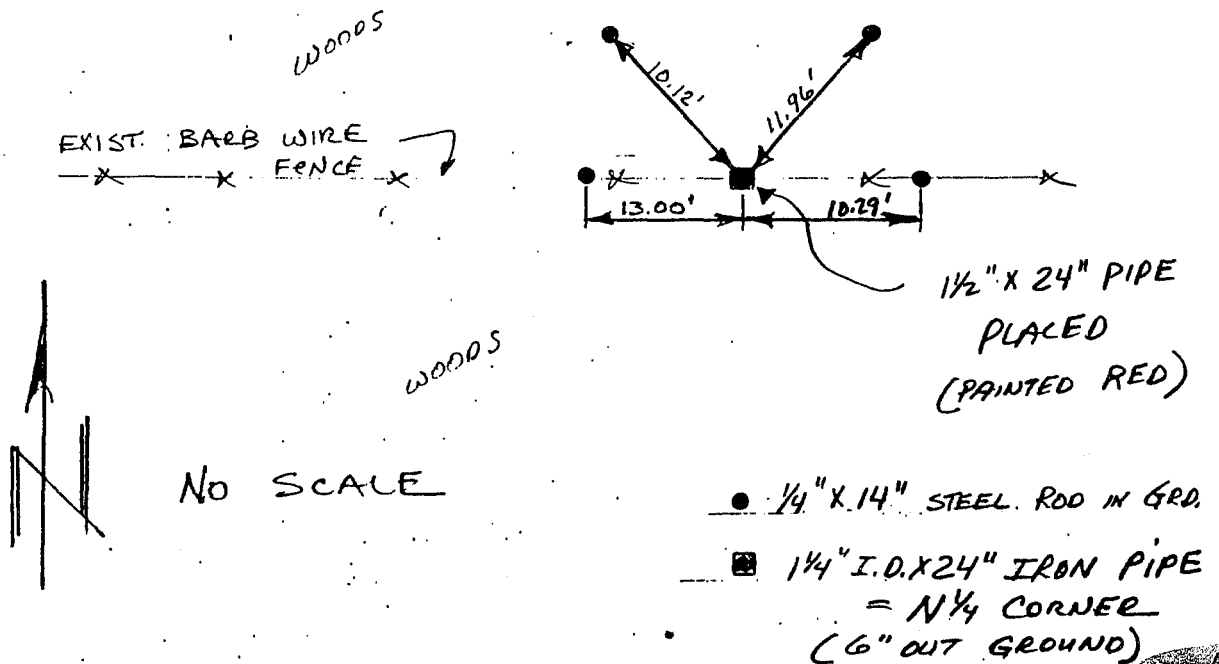 WOODS
10.12'
11.96'
EXIST. BARB WIRE
FENCE
13.00'
10.29'
1½" X 24" PIPE
PLACED
(PAINTED RED)
WOODS
N
NO SCALE
¼" X 14" STEEL ROD IN GRD.
1¼" I.D. X 24" IRON PIPE
= N¼ CORNER
(6" OUT GROUND)